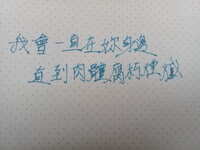 我會一直在妳身邊
直到肉體腐朽煙滅